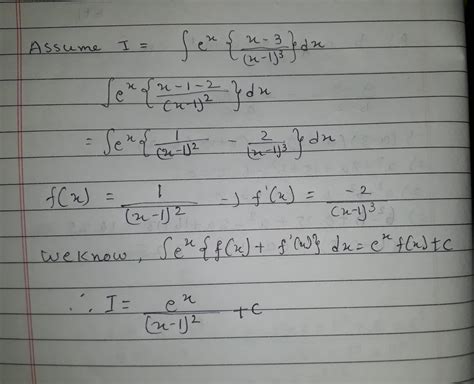 Assume I = ∫e^x {(x-3)/(x-1)^3}dx
∫e^x {(x-1-2)/(x-1)^2}dx
= ∫e^x {1/(x-1)^2 - 2/(x-1)^3} dx
f(x) = 1/(x-1)^2 → f'(x) = -2/(x-1)^3
We know, ∫e^x {f(x) + f'(x)} dx = e^x f(x) + c
∴ I = e^x/(x-1)^2 + c